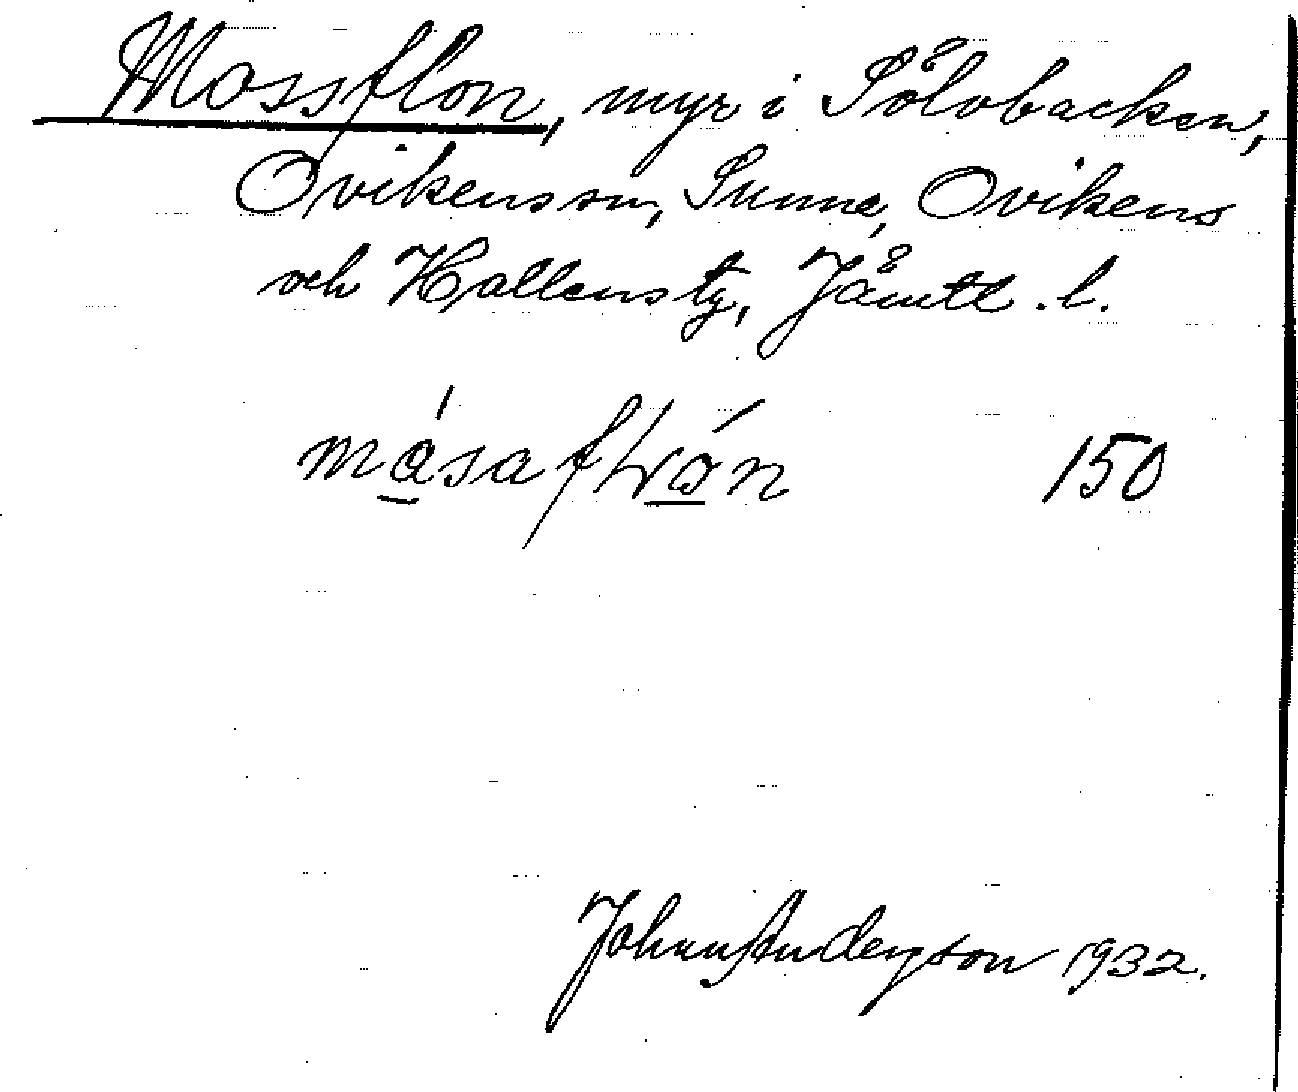 Mossflon, myr i Sölvbacken,
Ovikens sn, Sunne, Ovikens
och Hallens tg, Jämtl. l.
150
Johan Anderson 1932.